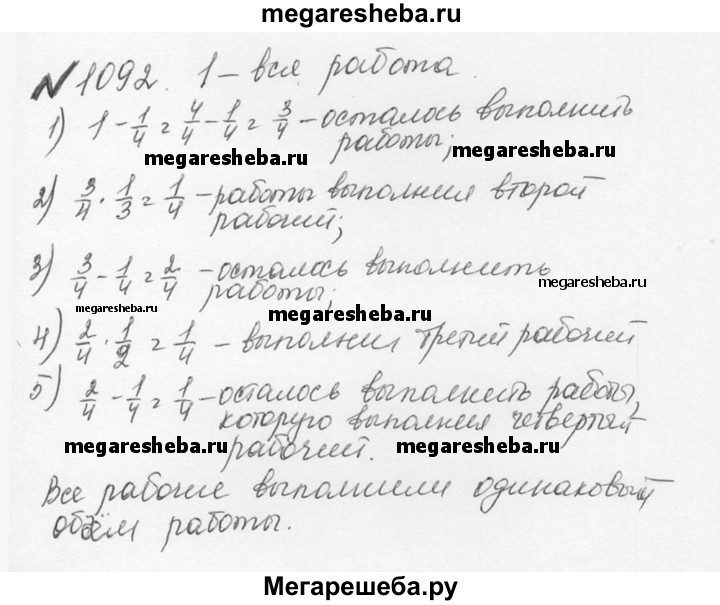 megaresheba.ru
№1092. 1 – вся работа.
1) 1 - 1/4 = 4/4 - 1/4 = 3/4 – осталось выполнить
работы;
megaresheba.ru megaresheba.ru
2) 3/4 · 1/3 = 1/4 – работы выполнил второй
рабочий;
3) 3/4 - 1/4 = 2/4 – осталось выполнить
работы;
megaresheba.ru
megaresheba.ru megaresheba.ru
4) 2/4 · 1/2 = 1/4 – выполнил третий рабочий
5) 2/4 - 1/4 = 1/4 – осталось выполнить работы,
которую выполнил четвертый
рабочий.
megaresheba.ru megaresheba.ru
Все рабочие выполнили одинаковый
объём работы.
Мегарешеба.ру